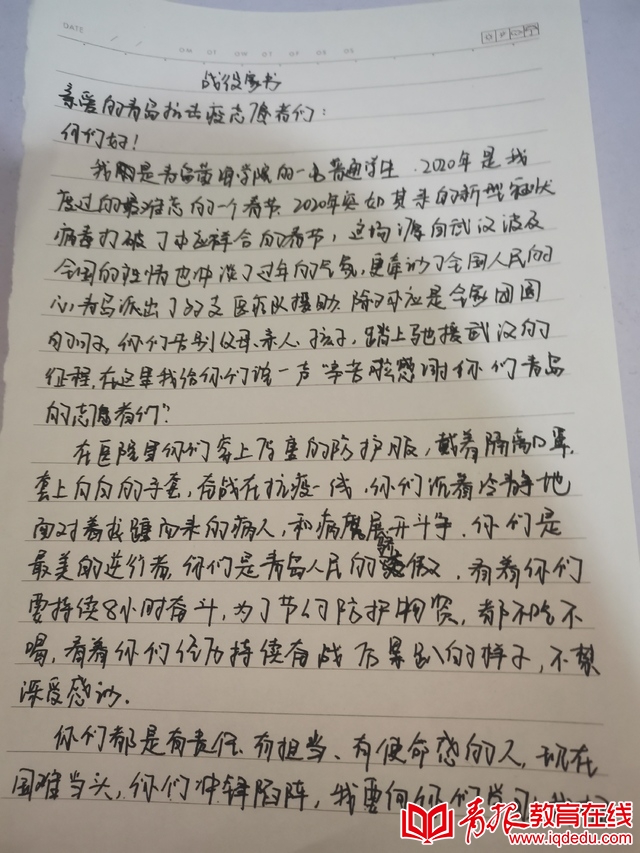 DATE
战役家书
亲爱的青岛抗击疫志愿者们：
你们好！
我是青岛黄海学院的一名普通学生．2020年是我
度过的最难忘的一个春节．2020年突如其来的新型冠状
病毒打破了本应祥合的春节，这场源自武汉波及
全国的疫情也冲淡了过年的气氛，更牵动了全国人民的
心，青岛派出了好支医疗队援助．除夕本应是全家团圆
的日子，你们告别父母、亲人、孩子，踏上驰援武汉的
征程，在这里我给你们说一声"辛苦啦感谢你们青岛
的志愿者们"
在医院里你们套上厚重的防护服，戴着隔离口罩，
套上白白的手套，奋战在抗疫一线，你们沉着冷静地
面对着找踵而来的病人，和病魔展开斗争．你们是
最美的逆行者，你们是青岛人民的骄傲，看着你们
要持续8小时奋斗，为了节约防护物资，都不吃不
喝，看着你们经历持续奋战后累趴的样子，不禁
深受感动．
你们都是有责任、有担当、有使命感的人，现在
国难当头，你们冲锋陷阵，我要向你们学习
青报教育在线
www.iqdedu.com